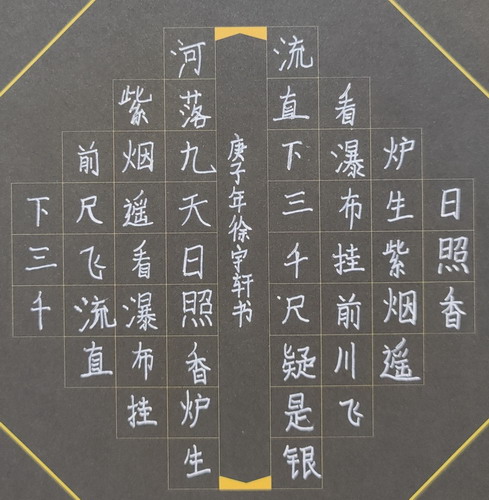 日照香
炉生紫烟遥
看瀑布挂前川飞
流直下三千尺疑是银
庚子年徐宇轩书
河落九天日照香炉生
紫烟遥看瀑布挂
前尺飞流直
下三千